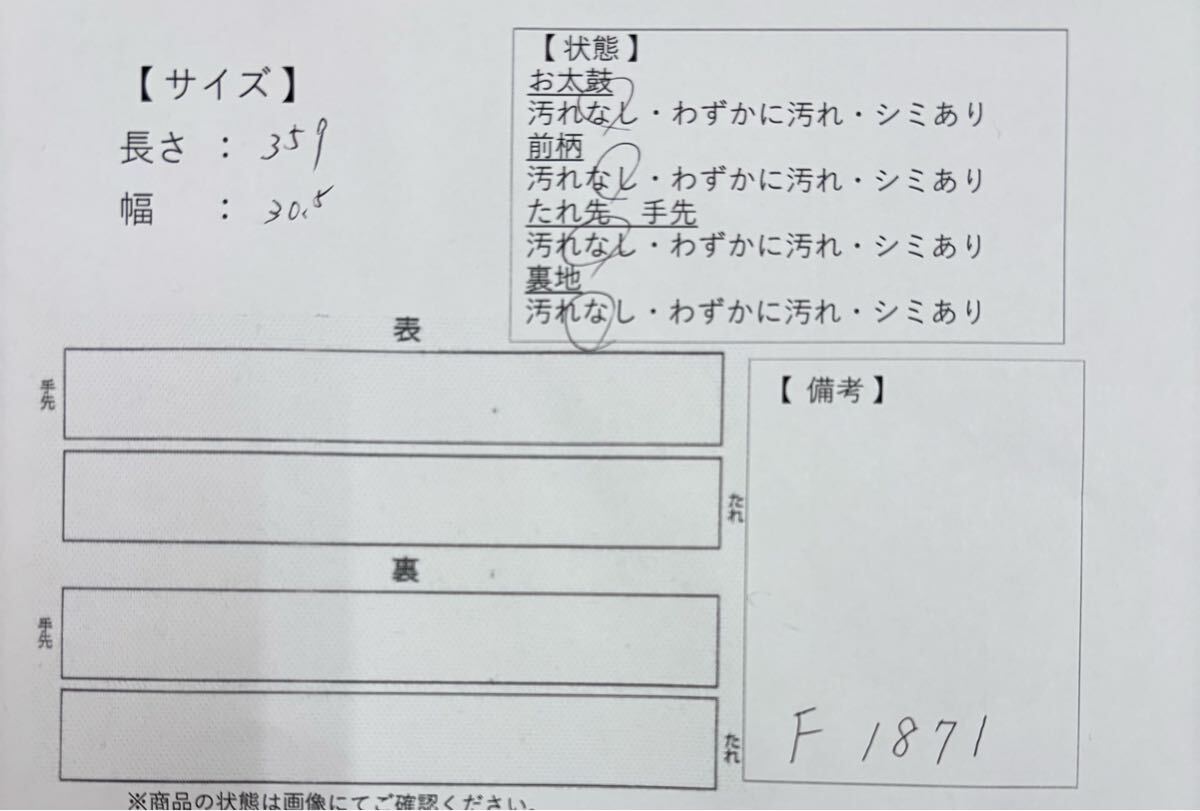 【サイズ】
長さ : 359
幅 : 30.5
【状態】
お太鼓
汚れなし・わずかに汚れ・シミあり
前柄
汚れなし・わずかに汚れ・シミあり
たれ先 手先
汚れなし・わずかに汚れ・シミあり
裏地
汚れなし・わずかに汚れ・シミあり
表
手先
たれ
裏
手先
たれ
【備考】
F 1871
※商品の状態は画像にてご確認ください。